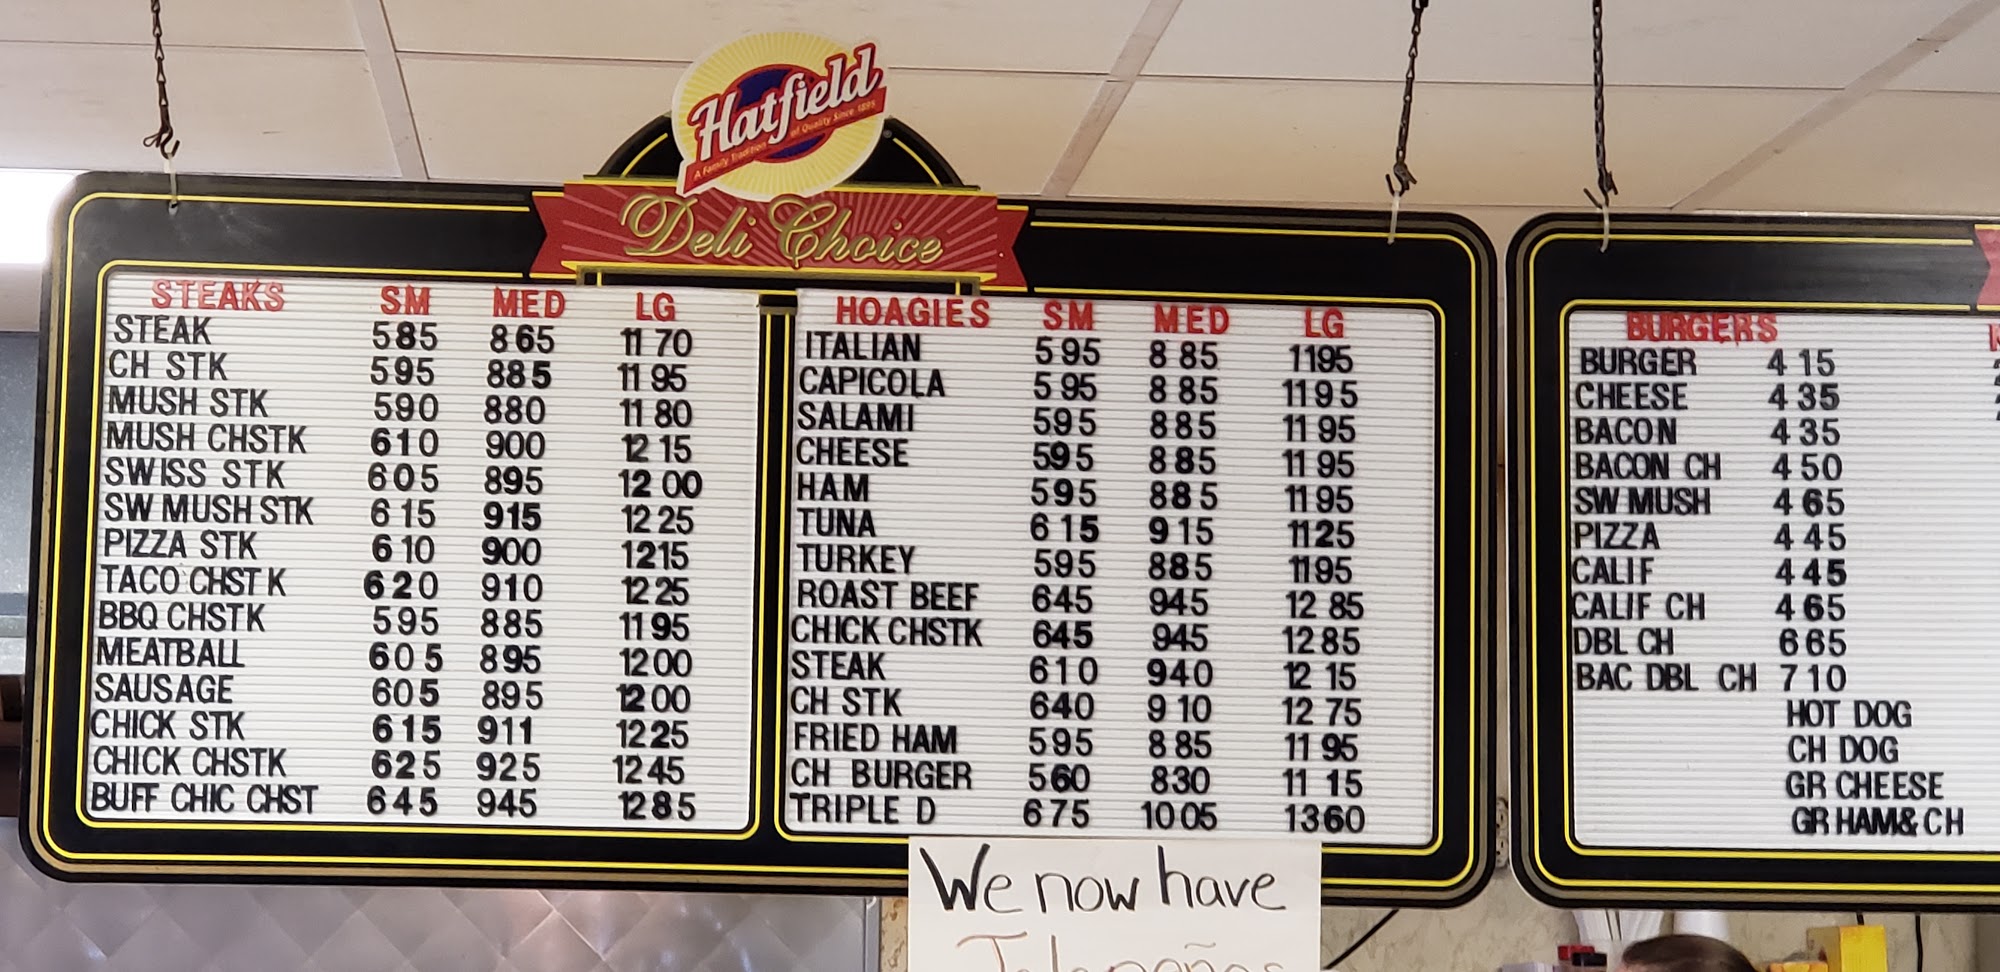 Hatfield
A Family Tradition of Quality Since 1895
Deli Choice
STEAKS SM MED LG
STEAK 585 865 11 70
CH STK 595 885 11 95
MUSH STK 590 880 11 80
MUSH CHSTK 610 900 12 15
SWISS STK 605 895 12 00
SW MUSH STK 615 915 12 25
PIZZA STK 610 900 12 15
TACO CHSTK 620 910 12 25
BBQ CHSTK 595 885 11 95
MEATBALL 605 895 12 00
SAUSAGE 605 895 12 00
CHICK STK 615 911 12 25
CHICK CHSTK 625 925 12 45
BUFF CHIC CHST 645 945 12 85
HOAGIES SM MED LG
ITALIAN 595 885 11 95
CAPICOLA 595 885 11 95
SALAMI 595 885 11 95
CHEESE 595 885 11 95
HAM 595 885 11 95
TUNA 615 915 11 25
TURKEY 595 885 11 95
ROAST BEEF 645 945 12 85
CHICK CHSTK 645 945 12 85
STEAK 610 940 12 15
CH STK 640 910 12 75
FRIED HAM 595 885 11 95
CH BURGER 560 830 11 15
TRIPLE D 675 10 05 13 60
BURGERS
BURGER 4 15
CHEESE 4 35
BACON 4 35
BACON CH 4 50
SW MUSH 4 65
PIZZA 4 45
CALIF 4 45
CALIF CH 4 65
DBL CH 6 65
BAC DBL CH 7 10
HOT DOG
CH DOG
GR CHEESE
GR HAM & CH
We now have
Jalapeños